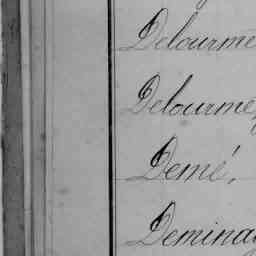 Delourme
Delourme,
Demé,
Deminay